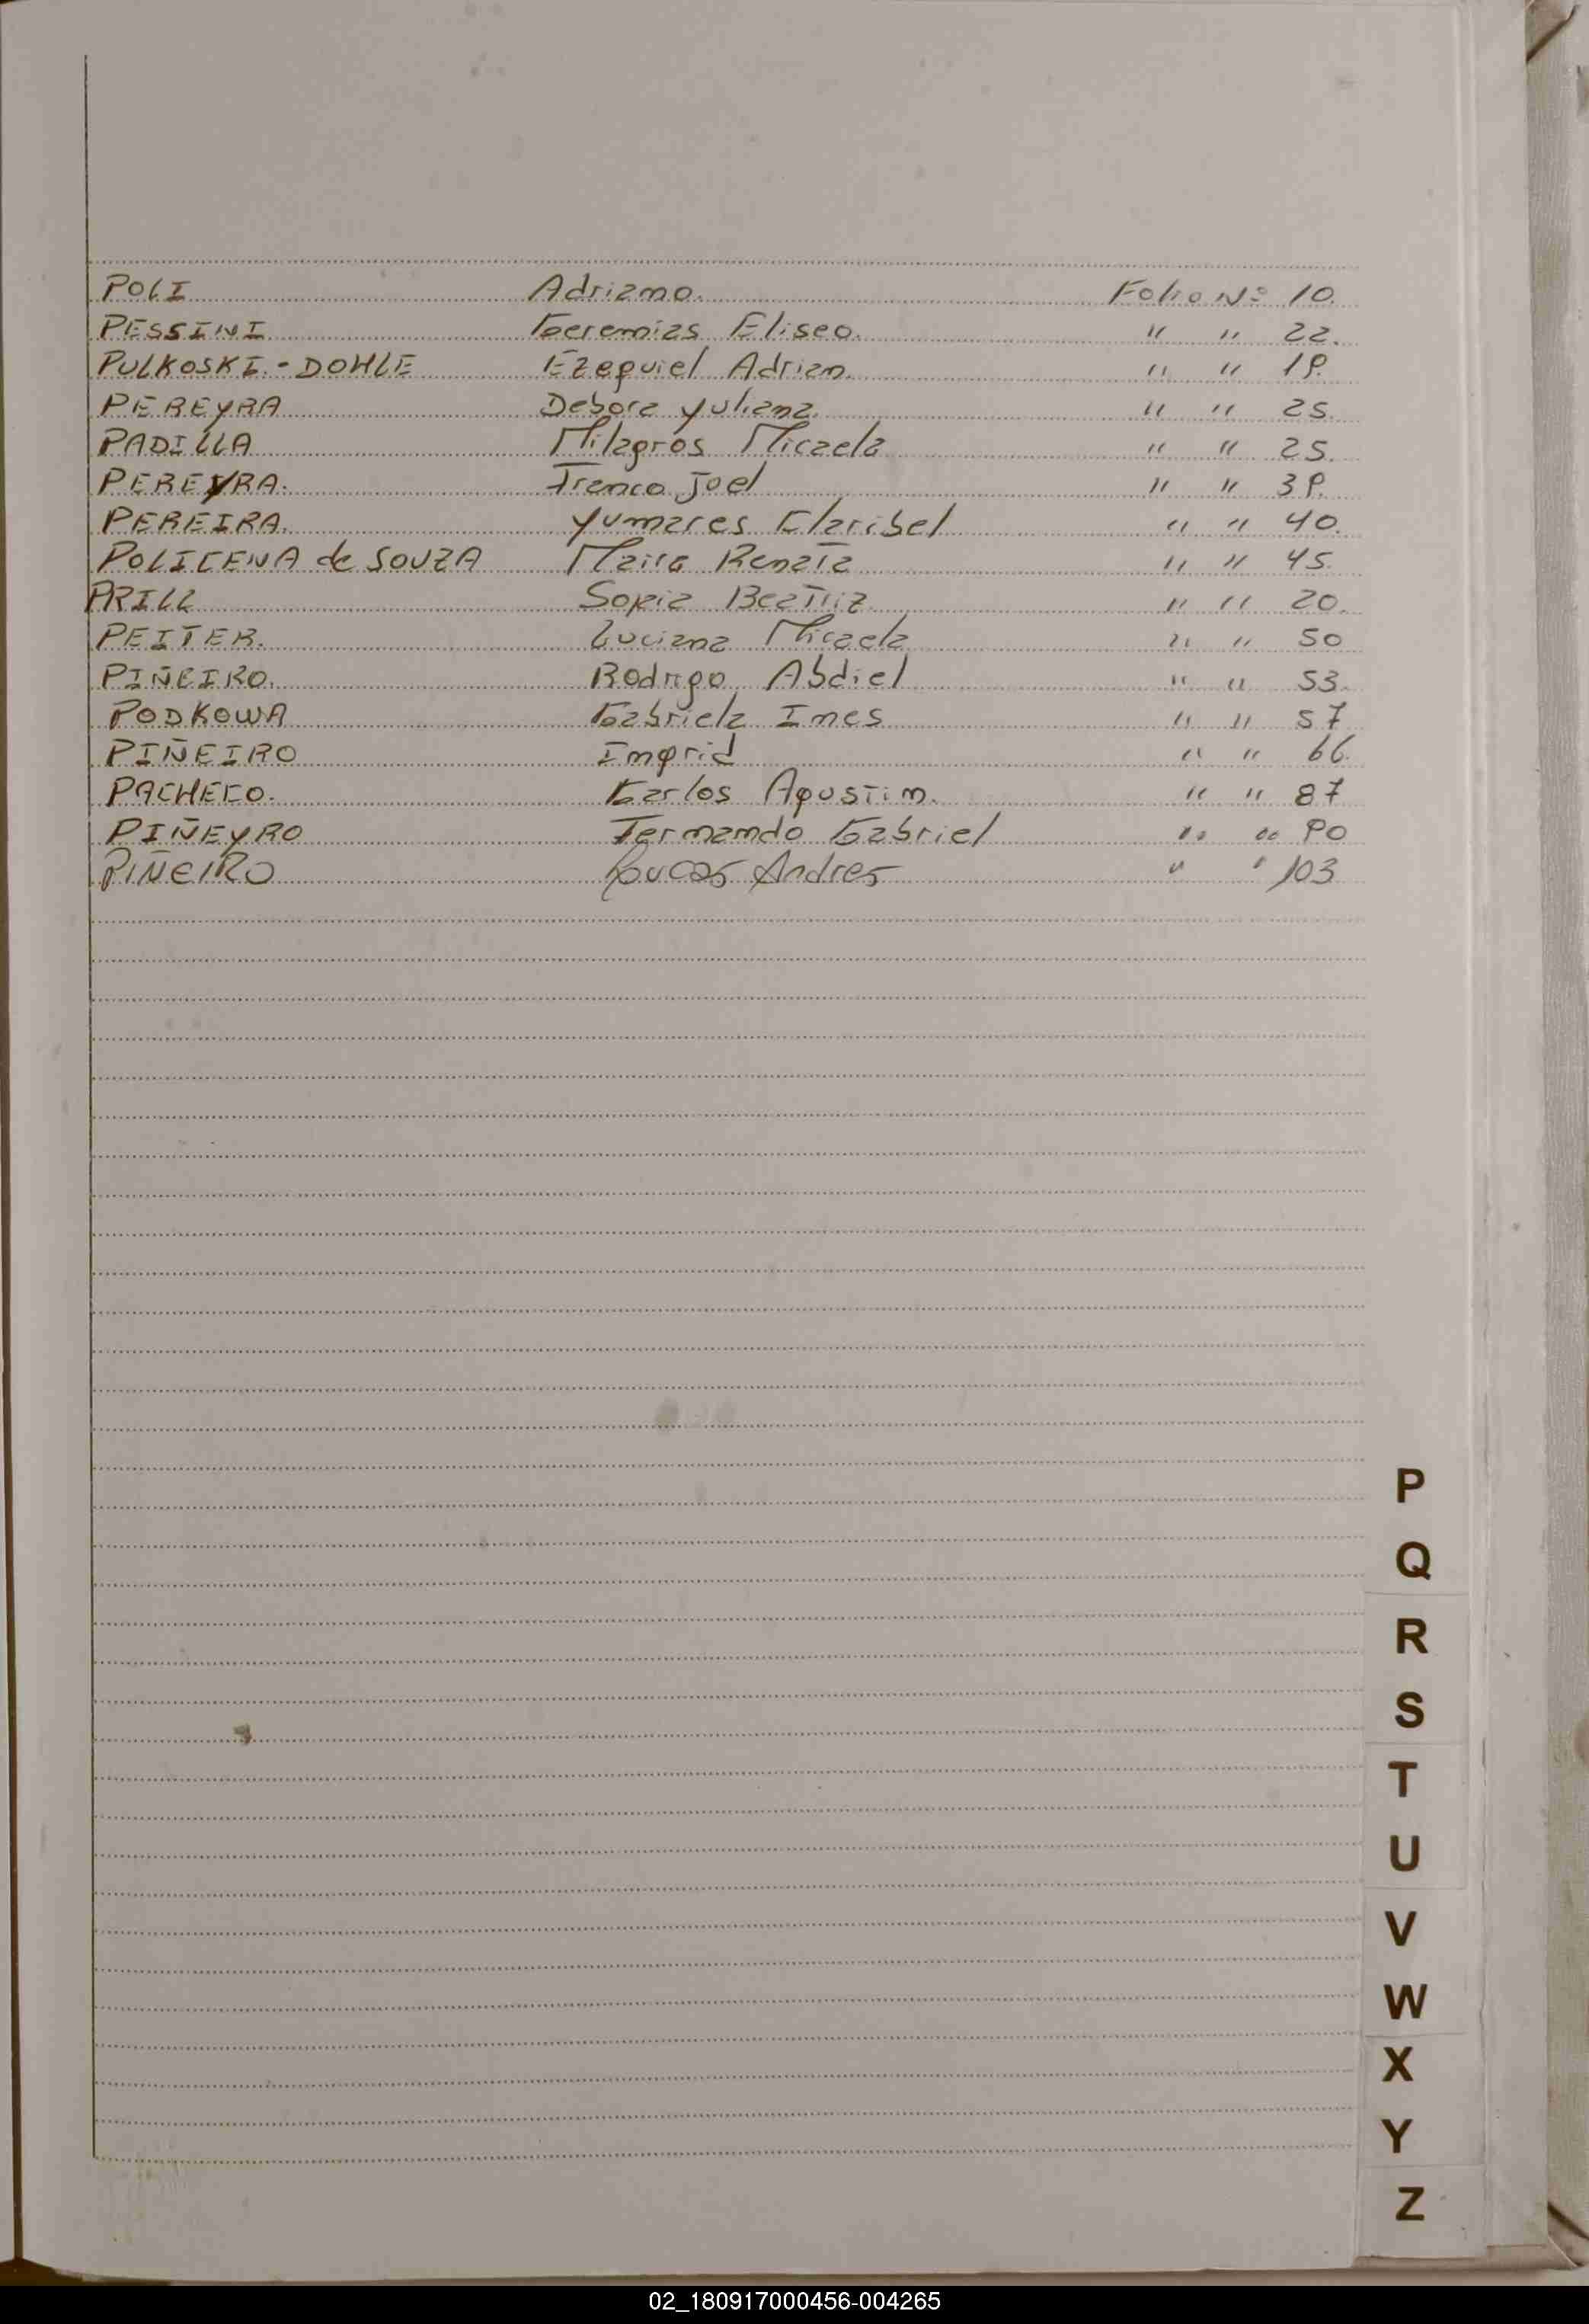 POLI Adriano. Folio Nº 10.
PESSINI Geremias Eliseo. " " 22.
PULKOSKI.-DOHLE Ezequiel Adrian. " " 19.
PEREYRA Debora Yuliana. " " 25.
PADILLA Milagros Micaela " " 25.
PEREYRA. Franco Joel " " 39.
PEREIRA. Yumares Claribel " " 40.
POLICENA de SOUZA Maira Renata " " 45.
PRILL Sofia Beatriz. " " 20.
PEITER. Luciana Micaela " " 50
PIÑEIRO. Rodrigo Abdiel " " 53.
PODKOWA Gabriela Ines " " 57
PIÑEIRO Ingrid " " 66.
PACHECO. Carlos Agustin. " " 87
PIÑEYRO Fernando Gabriel " " 90
PIÑEIRO Lucas Andres " " 103
P
Q
R
S
T
U
V
W
X
Y
Z
02_180917000456-004265